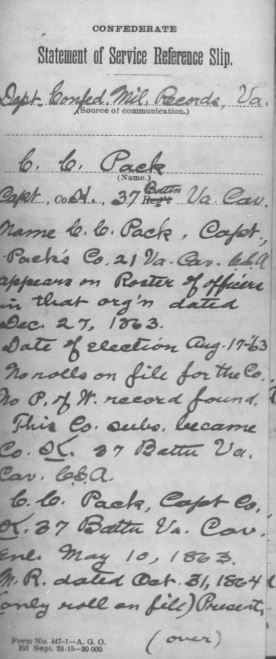 CONFEDERATE
Statement of Service Reference Slip.
Dept. Confed. Mil. Records, Va.
(Source of communication.)
C. C. Pack
(Name.)
Capt., Co. K., 37 Battn Reg't Va. Cav.
Name C. C. Pack, Capt.,
Pack's Co. 21 Va. Cav. C.S.A.
appears on Roster of officers
in that org'n dated
Dec. 27, 1863.
Date of election Aug. 17-'63
No rolls on file for the Co.
No P. of W. record found.
This Co. subs. became
Co. K. 37 Battn Va.
Cav. C.S.A.
C. C. Pack, Capt Co.
K. 37 Battn Va. Cav.
enl. May 10, 1863.
M. R. dated Oct. 31, 1864
(only roll on file) Present,
(over)
Form No. 447-1—A. G. O.
Ed Sept. 23-15—20 000